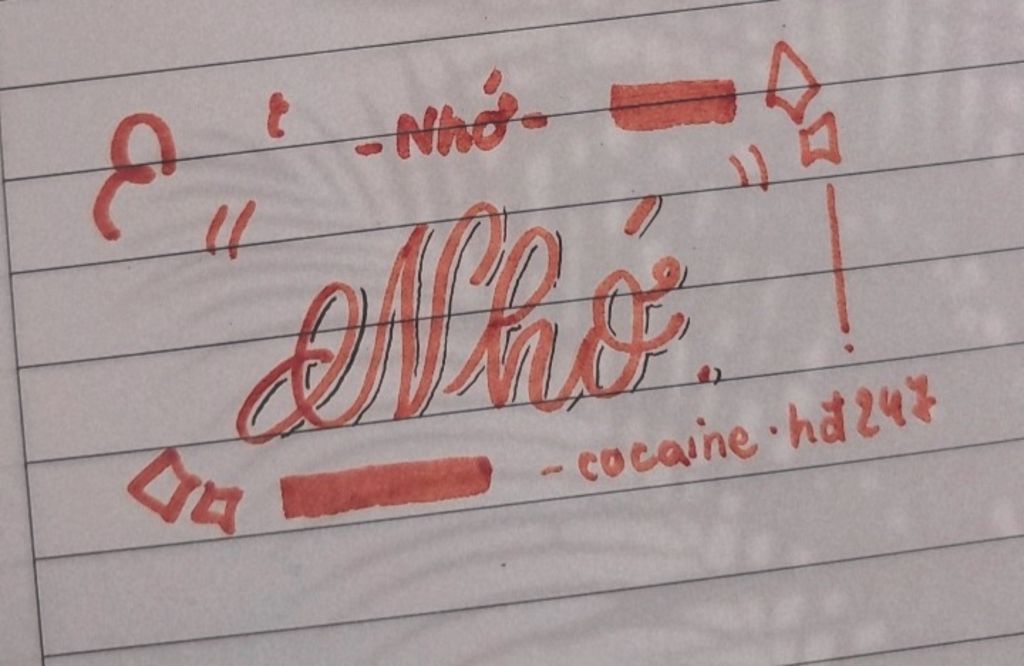 -Nhớ-
"Nhớ."
-cocaine.hđ247